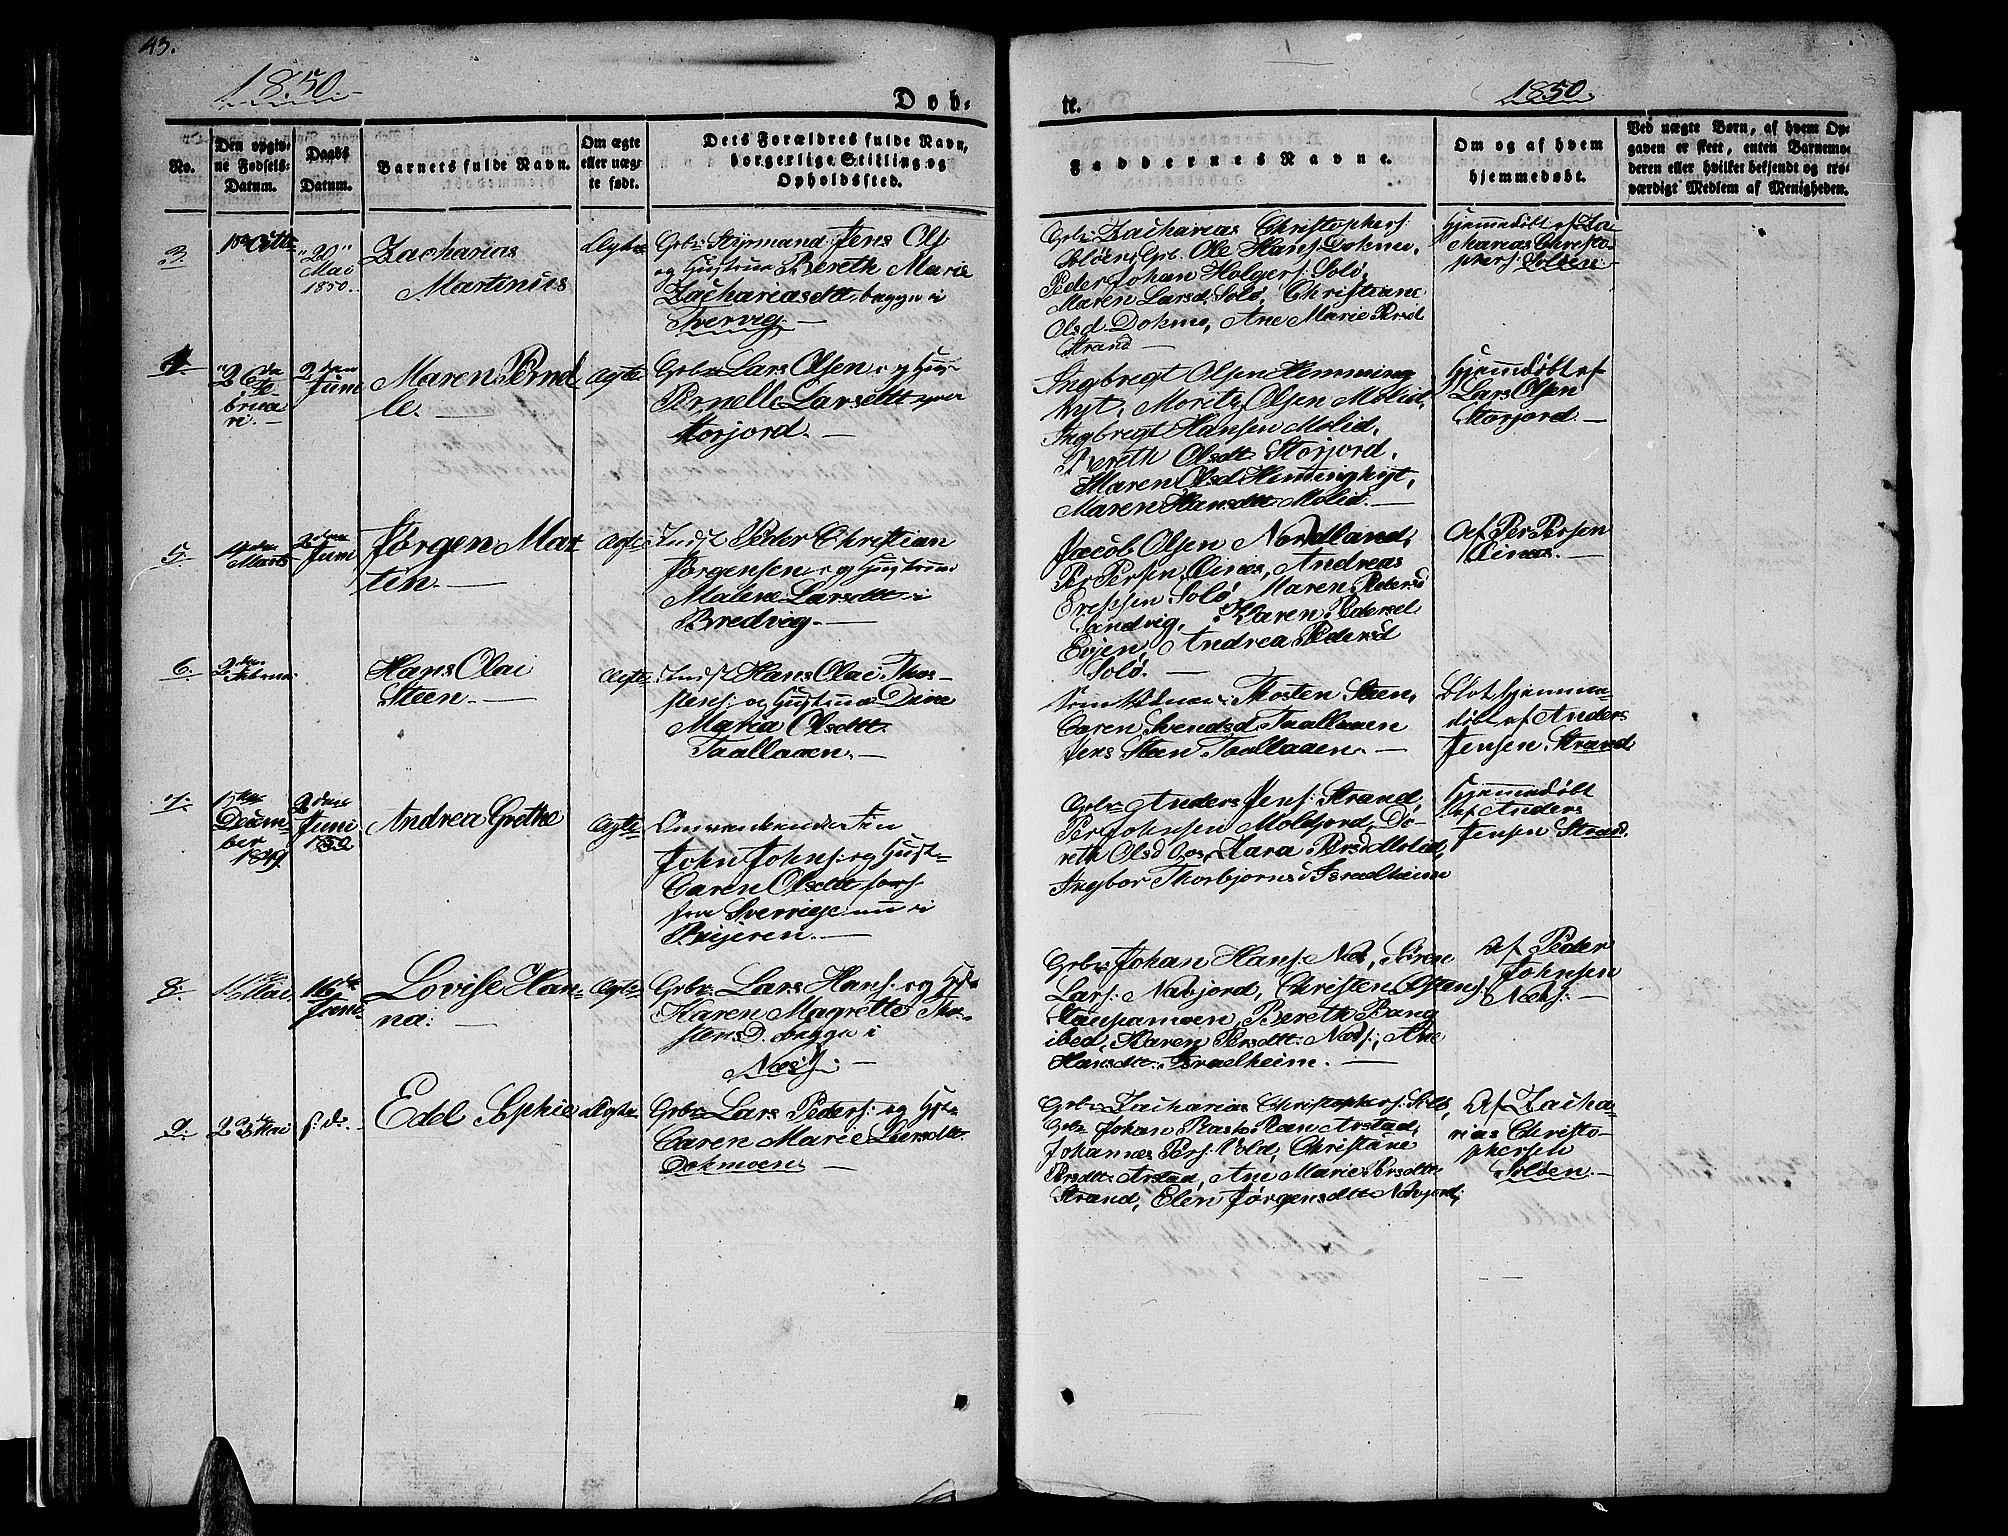 43.
1850.
Døb-
te.
1850.
No.
Den opgiv-
ne Fødsels-
Datum.
Daabs
Datum.
Barnets fulde Navn.
Om ægte
eller uæg-
te født.
Dets Forældres fulde Navn,
borgerlige Stilling og
Opholdssted.
Faddernes Navne.
Om og af hvem
hjemmedøbt.
Ved uægte Børn, af hvem Op-
gaven er skeet, enten Barnemo-
deren eller hvilket bekjendt og tro-
værdigt Medlem af Menigheden.
3.
20
Mai
1850.
Zacharias
Martinus
Ægte
Grbr. Styrmand Jens Ols
og Hustrue Bereth Marie
Zachariasdtt. begge i
Svervig.
Grbr. Zacharias Christophers:
Soløen, Grb. Ole Hans: Dokmo,
Peder Johan Holgers: Solø,
Maren Larsd. Solø, Christiane
Olsd. Dokmo, Ane Marie Persd
Strand
Hjemmedøbt af Za
charias Christo-
phers: Soløen.
4.
26de
Fe-
brua
ri.
2den
Juni
Maren Pernel
le.
Ægte
Grbr. Lars Olsen og Hus-
Pernelle Larsdtt
Storjord.
Ingbregt Olsen Hemming
hyt, Moritz Olsen Molid,
Ingbregt Hansen Molid,
Bereth Olsdt. Storjord.
Maren Olsd Hemminghyt,
Maren Hansdtt. Molid.
Hjemmedøbt af
Lars Olsen
Storjord.
5.
Marts
2den
Juni
Jørgen Mar
tin.
Ægte
Inds: Peder Christian
Jørgensen og Hustrue
Malene Larsdtt. i
Bredvig.
Jacob Olsen Nordland,
Per Persen Ainæs, Andreas
Solø, Maren Pedersd
Sandvig, Karen Pedersd.
Evjen, Andrea Pedersd
Solø.
Af Per Persen
Ainæs.
6.
2den
Februar
Hans Olai
Steen.
Ægte
Inds: Hans Olai Thor-
stens: og Hustrue Dine
Maria Olsdtt.
Taallaaen.
Som Vidner: Thosten Steen,
Caren Svendsd. Taallaaen
Jens Steen Taallaaen.
Blot hjemme-
døbt af Anders
Jensen Strand
7.
Decem-
ber
1849.
2den
Juni
1850
Andrea Grethe
Ægte
Omvankende Fin
John Johns: og Hust-
Caren Olsdtt. fors:
fra Sverrige nu i
Beijeren.
Grbr. Anders Jens: Strand,
Per Johnsen Moldjord, Do-
reth Olsd Os, Sara Persd. Molid,
Ingbor Thorbjørnsd Israelheim
Hjemmedøbt
af Anders
Jensen Strand.
8.
Mai
16de
Juni
Lovise Han-
na.
Ægte
Grbr. Lars Hans: og Hst.
Karen Magrette Thor-
stensD. begge i
Næss.
Grbr. Johan Hans: Næs, Søren
Lars: Næsjord, Christen
Staupamoen, Bereth Bang
ibed, Karen Persdtt. Næss:, Ane
Hansdtt. Israelheim.
Af Peder
Johnsen
Næss:
9.
23 Mai
s: d:
Edel Sophie
Ægte
Grbr. Lars Peders: og Hst.
Caren Marie Larsdtt.
Dokmoen.
Grbr. Zacharias Christophers: Solø,
Grbr. Johan Arstad,
Johannes Pers: Vold, Christiane
Persdtt. Arstad, Ane Marie Persdtt.
Strand, Elen Jørgensdtt. Næsjord,
Af Zacha-
rias Christo-
phersen
Soløen.